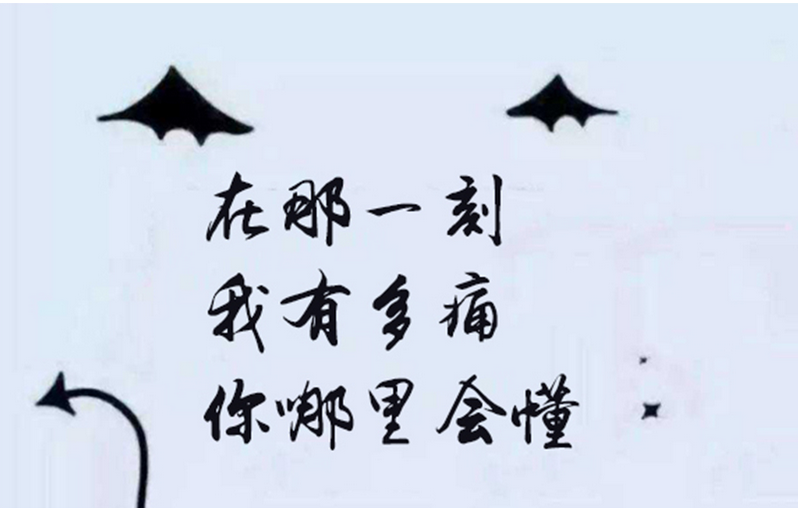 在那一刻
我有多痛
你哪里会懂